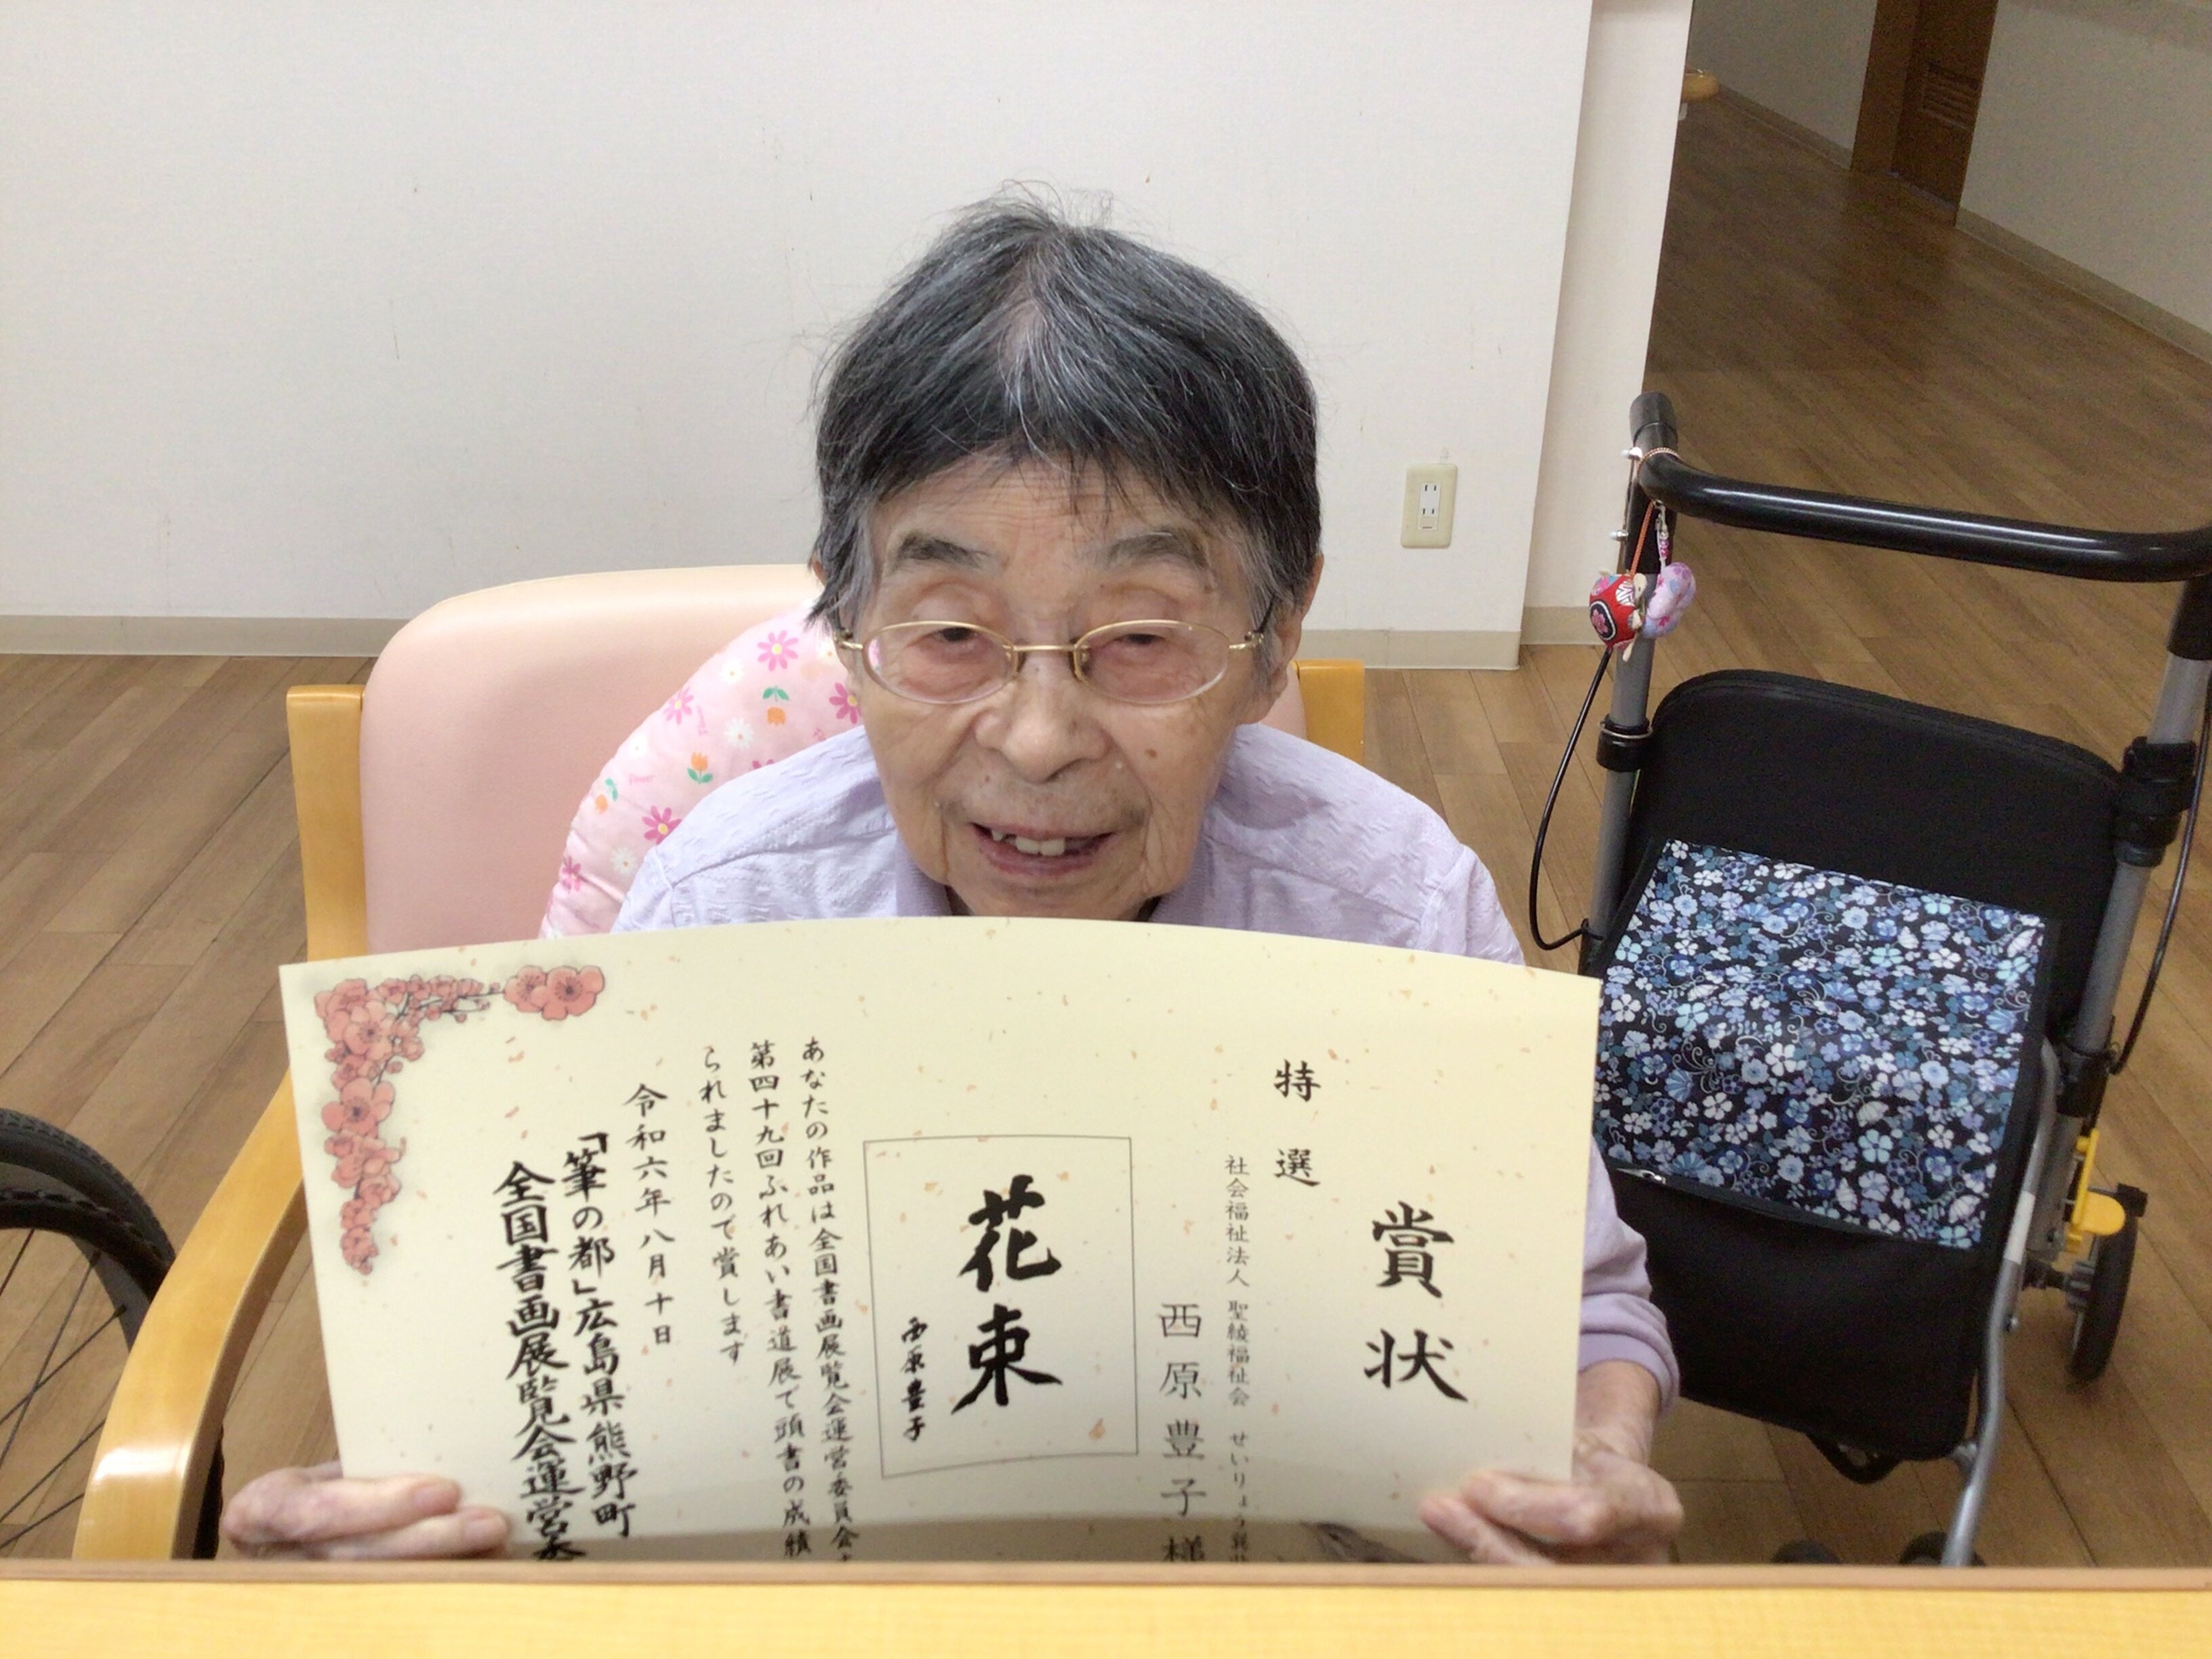 賞状
特選
社会福祉法人 聖綾福祉会 せいりょう
西原豊子様
花束
西原豊子
あなたの作品は全国書画展覧会運営委員会
第四十九回ふれあい書道展で頭書の成績
られましたので賞します
令和六年八月十日
「筆の都」広島県熊野町
全国書画展覧会運営委